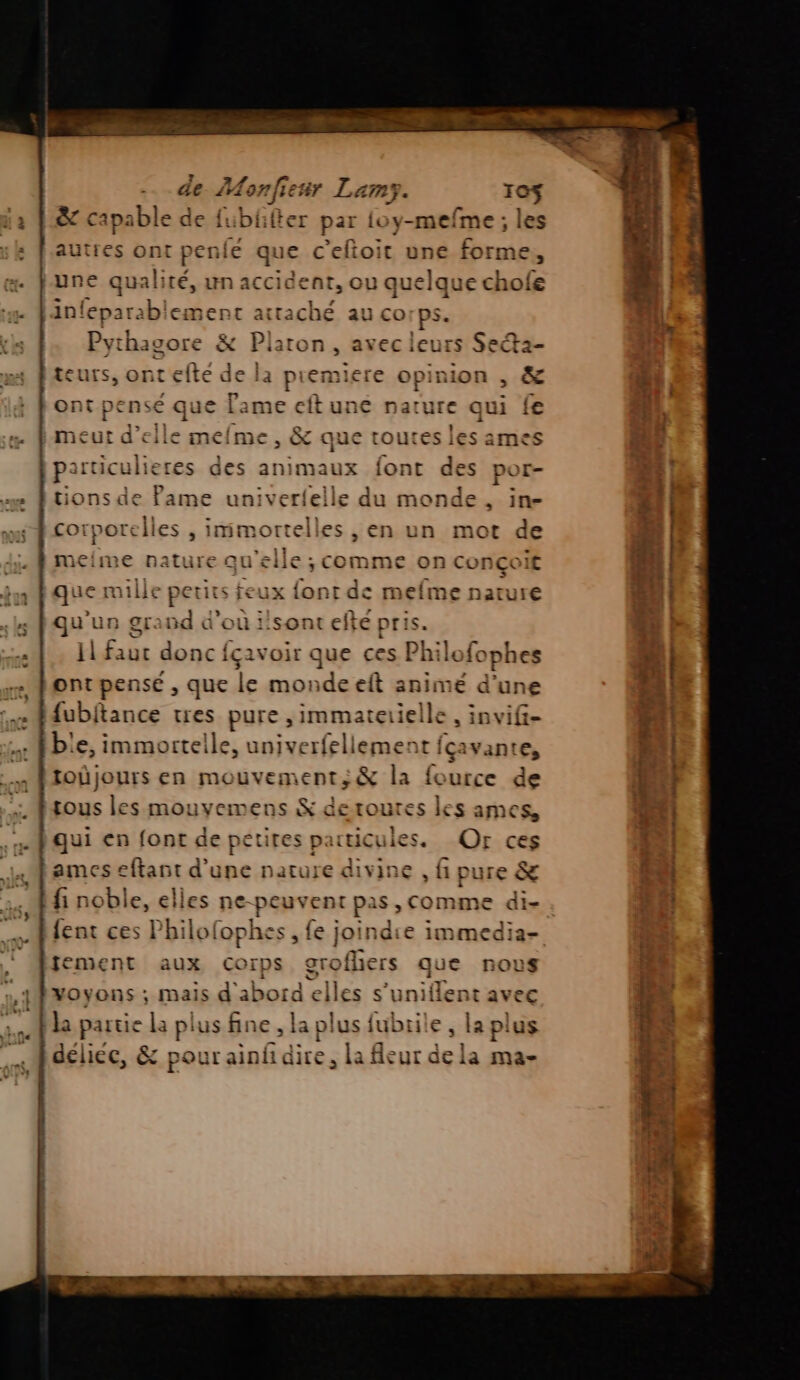 de Monſieur Lamy. 105
& capable de ſubſiſter par ſoy-meſme ; les
autres ont penſé que c'eſtoit une forme,
une qualité, un accident, ou quelque choſe
inſeparablement attaché au corps.
Pythagore & Platon, avec leurs Secta-
teurs, ont eſté de la premiere opinion , &
ont pensé que l'ame eſt une nature qui ſe
meut d'elle meſme, & que toutes les ames
particulieres des animaux ſont des por-
tions de l'ame univerſelle du monde, in-
corporelles , immortelles , en un mot de
meſme nature qu'elle ; comme on conçoit
que mille petits feux ſont de meſme nature
qu'un grand d'où ils ont eſté pris.
Il faut donc ſçavoir que ces Philoſophes
ont pensé , que le monde eſt animé d'une
ſubſtance tres pure , immaterielle , inviſi-
ble, immortelle, univerſellement ſçavante,
toûjours en mouvement ; & la ſource de
tous les mouvemens & de toutes les ames,
qui en ſont de petites particules. Or ces
ames eſtant d'une nature divine , ſi pure &
ſi noble, elles ne-peuvent pas , comme di-
ſent ces Philoſophes , ſe joindre immedia-
tement aux corps groſſiers que nous
voyons ; mais d'abord elles s'uniſſent avec
la partie la plus fine , la plus ſubtile , la plus
déliée, & pour ainſi dire, la fleur de la ma-